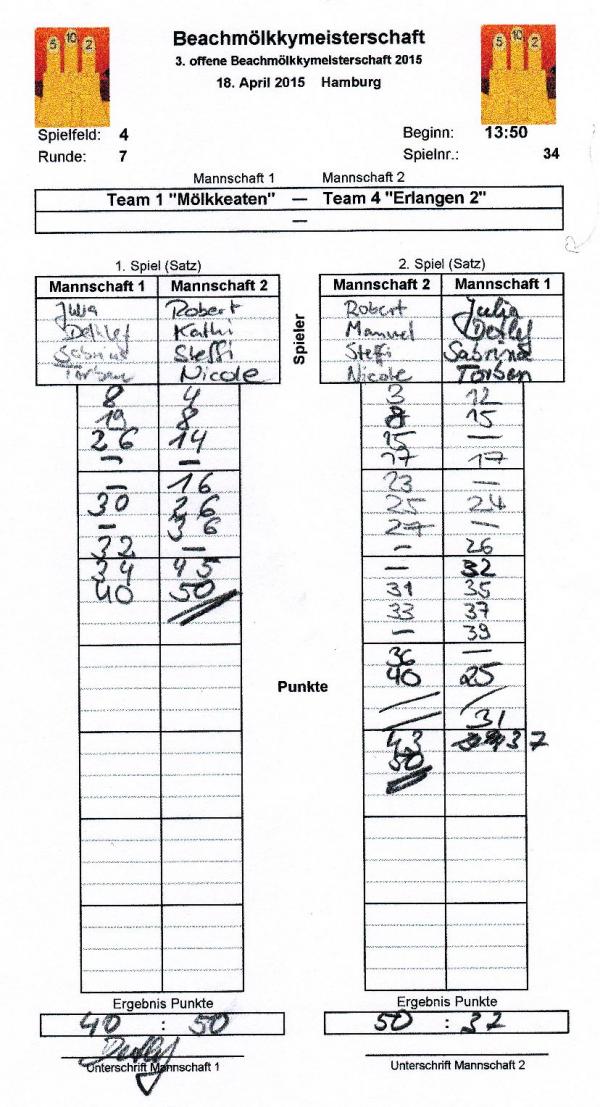 5 10 2
5 10 2
Beachmölkkymeisterschaft
3. offene Beachmölkkymeisterschaft 2015
18. April 2015 Hamburg
Spielfeld: 4 Beginn: 13:50
Runde: 7 Spielnr.: 34
Mannschaft 1 Mannschaft 2
Team 1 "Mölkkeaten" — Team 4 "Erlangen 2"
—
1. Spiel (Satz)
Mannschaft 1 Mannschaft 2
Julia Robert
Detlef Kathi
Sabrina Steffi
Torben Nicole
8 4
19 8
26 14
– –
– 16
30 26
– 36
32 –
34 45
40 50
Spieler
2. Spiel (Satz)
Mannschaft 2 Mannschaft 1
Robert Julia
Manuel Detlef
Steffi Sabrina
Nicole Torben
3 12
8 15
15 –
17 17
23 –
25 24
27 –
– 26
– 32
31 35
33 37
– 39
36 –
40 25
/ /
/ 31
43 37
50
Punkte
Ergebnis Punkte
40 : 50
Unterschrift Mannschaft 1
Ergebnis Punkte
50 : 37
Unterschrift Mannschaft 2